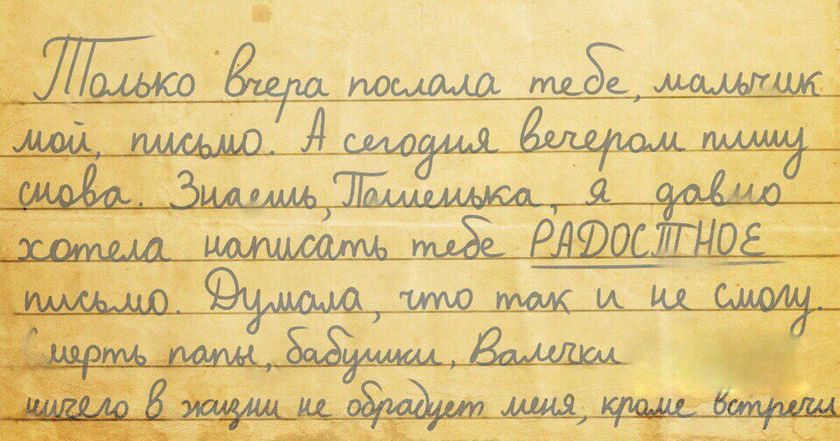 Только вчера послала тебе, мальчик
мой, письмо. А сегодня вечером пишу
снова. Знаешь, Пашенька, я давно
хотела написать тебе РАДОСТНОЕ
письмо. Думала, что так и не смогу.
Смерть папы, бабушки, Валечки
ничего в жизни не обрадует меня, кроме встречи